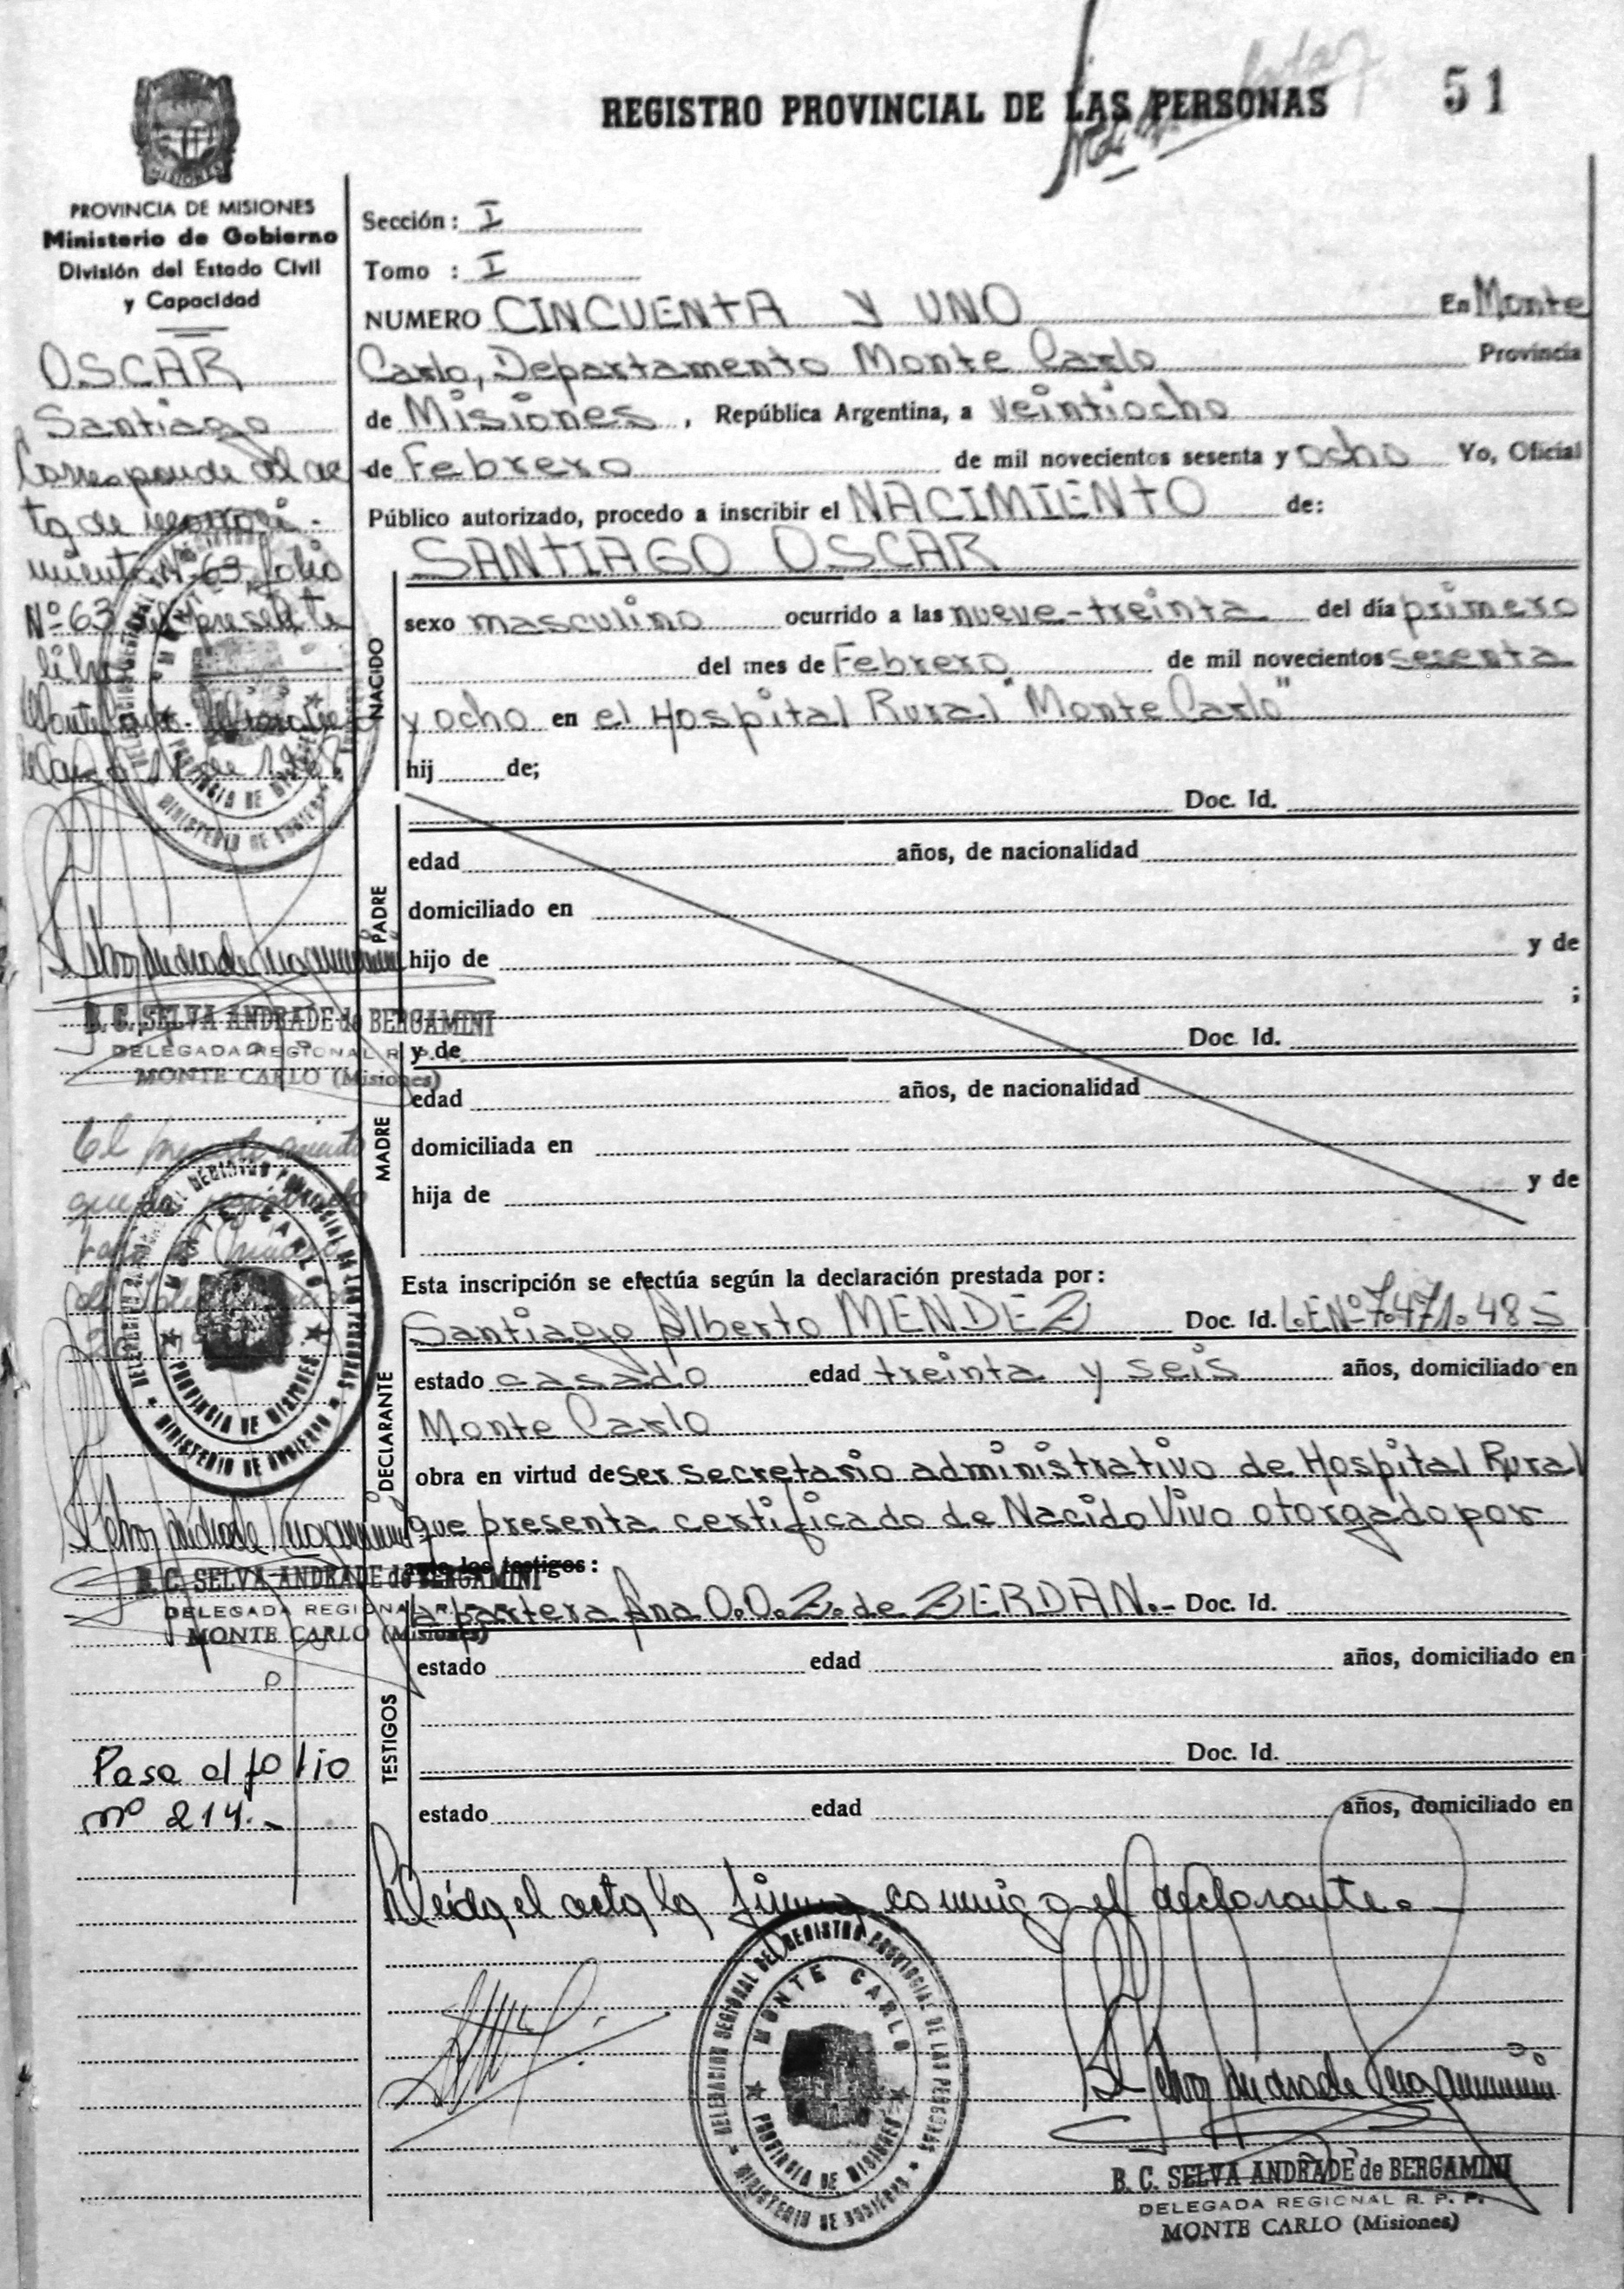 REGISTRO PROVINCIAL DE LAS PERSONAS
51
PROVINCIA DE MISIONES
Ministerio de Gobierno
División del Estado Civil
y Capacidad
OSCAR
Santiago
Corresponde al ac
ta de
miento Nº 63 folio
Nº 63 del presente
libro
Monte Carlo
de 1968
B. C. SELVA ANDRADE de BERGAMINI
DELEGADA REGIONAL R. P. P.
MONTE CARLO (Misiones)
El
queda
B. C. SELVA ANDRADE de BERGAMINI
DELEGADA REGIONAL R. P. P.
MONTE CARLO (Misiones)
Pasa al folio
nº 214.-
Sección: I
Tomo : I
NUMERO CINCUENTA Y UNO En Monte
Carlo, Departamento Monte Carlo Provincia
de Misiones, República Argentina, a veintiocho
de Febrero de mil novecientos sesenta y ocho Yo, Oficial
Público autorizado, procedo a inscribir el NACIMIENTO de:
SANTIAGO OSCAR
NACIDO
sexo masculino ocurrido a las nueve-treinta del día primero
del mes de Febrero de mil novecientos sesenta
y ocho en el Hospital Rural "Monte Carlo"
hij de;
PADRE
Doc. Id.
edad años, de nacionalidad
domiciliado en
hijo de y de
;
MADRE
y de Doc. Id.
edad años, de nacionalidad
domiciliada en
hija de y de
Esta inscripción se efectúa según la declaración prestada por:
DECLARANTE
Santiago Alberto MENDEZ Doc. Id. L.E.Nº 7.471.485
estado casado edad treinta y seis años, domiciliado en
Monte Carlo
obra en virtud de ser secretario administrativo de Hospital Rural
que presenta certificado de Nacido Vivo otorgado por
ante los testigos:
TESTIGOS
la partera Ana O.O.Z. de ZERDAN.- Doc. Id.
estado edad años, domiciliado en
Doc. Id.
estado edad años, domiciliado en
Leída el acta la firma conmigo el declarante.-
DELEGACION REGIONAL DEL REGISTRO PROVINCIAL DE LAS PERSONAS
MONTE CARLO
PROVINCIA DE MISIONES
MINISTERIO DE GOBIERNO
B. C. SELVA ANDRADE de BERGAMINI
DELEGADA REGIONAL R. P. P.
MONTE CARLO (Misiones)